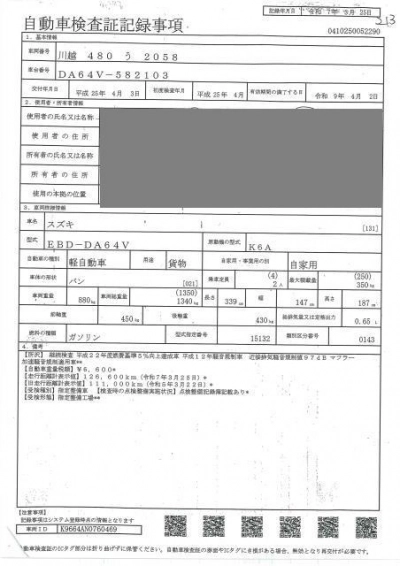 自動車検査証記録事項
記録年月日 令和 7年 3月 25日
313
0410250052290
1. 基本情報
車両番号 川越 480 う 2058
車台番号 DA64V-582103
交付年月日 平成 25年 4月 3日 初度検査年月 平成 25年 4月 有効期間の満了する日 令和 9年 4月 2日
2. 使用者・所有者情報
使用者の氏名又は名称
使用者の住所
所有者の氏名又は名称
所有者の住所
使用の本拠の位置
3. 車両詳細情報
車名 スズキ [131]
型式 EBD-DA64V 原動機の型式 K6A
自動車の種別 軽自動車 用途 貨物 自家用・事業用の別 自家用
車体の形状 バン [021] 乗車定員 (4) 2人 最大積載量 (250) 350kg
車両重量 880kg 車両総重量 (1350) 1340kg 長さ 339cm 幅 147cm 高さ 187cm
前軸重 450kg 後軸重 430kg 総排気量又は定格出力 0.65L
燃料の種類 ガソリン 型式指定番号 15132 類別区分番号 0143
4. 備考
【所沢】 継続検査 平成22年度燃費基準5%向上達成車 平成12年騒音規制車 近接排気騒音規制値97dB マフラー
加速騒音規制適用車**
【自動車重量税額】 ¥6,600*
【走行距離計表示値】 126,600km (令和7年3月25日)*
【旧走行距離計表示値】 111,000km (令和5年3月22日)*
【受検種別】 指定整備車 【検査時の点検整備実施状況】 点検整備記録簿記載あり*
【受検形態】 指定整備工場**
【注意事項】
記録事項はシステム登録時点の情報となります
車両ID K9664AN0760469
動車検査証のICタグ部分は折り曲げずに保管ください。自動車検査証の券面やICタグに各種がある場合、無効となり再交付が必要です。